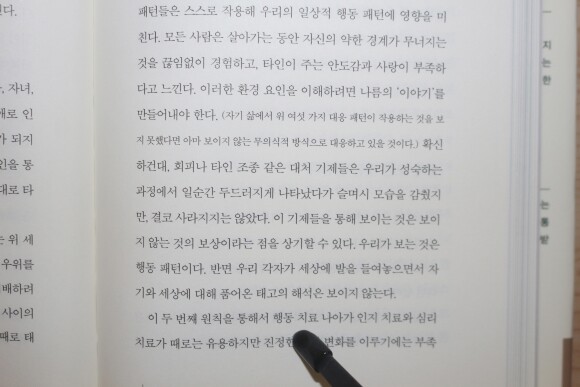 진다.
, 자녀,
개로 인
가 되지
인을 통
대로 타
는 위 세
우위를
배하려
사이의
때로 태
패턴들은 스스로 작용해 우리의 일상적 행동 패턴에 영향을 미
친다. 모든 사람은 살아가는 동안 자신의 약한 경계가 무너지는
것을 끊임없이 경험하고, 타인이 주는 안도감과 사랑이 부족하
다고 느낀다. 이러한 환경 요인을 이해하려면 나름의 ‘이야기’를
만들어내야 한다. (자기 삶에서 위 여섯 가지 대응 패턴이 작용하는 것을 보
지 못했다면 아마 보이지 않는 무의식적 방식으로 대응하고 있을 것이다.) 확신
하건대, 회피나 타인 조종 같은 대처 기제들은 우리가 성숙하는
과정에서 일순간 두드러지게 나타났다가 슬며시 모습을 감췄지
만, 결코 사라지지는 않았다. 이 기제들을 통해 보이는 것은 보이
지 않는 것의 보상이라는 점을 상기할 수 있다. 우리가 보는 것은
행동 패턴이다. 반면 우리 각자가 세상에 발을 들여놓으면서 자
기와 세상에 대해 품어온 태고의 해석은 보이지 않는다.
이 두 번째 원칙을 통해서 행동 치료 나아가 인지 치료와 심리
치료가 때로는 유용하지만 변화를 이루기에는 부족
지는한
는통방